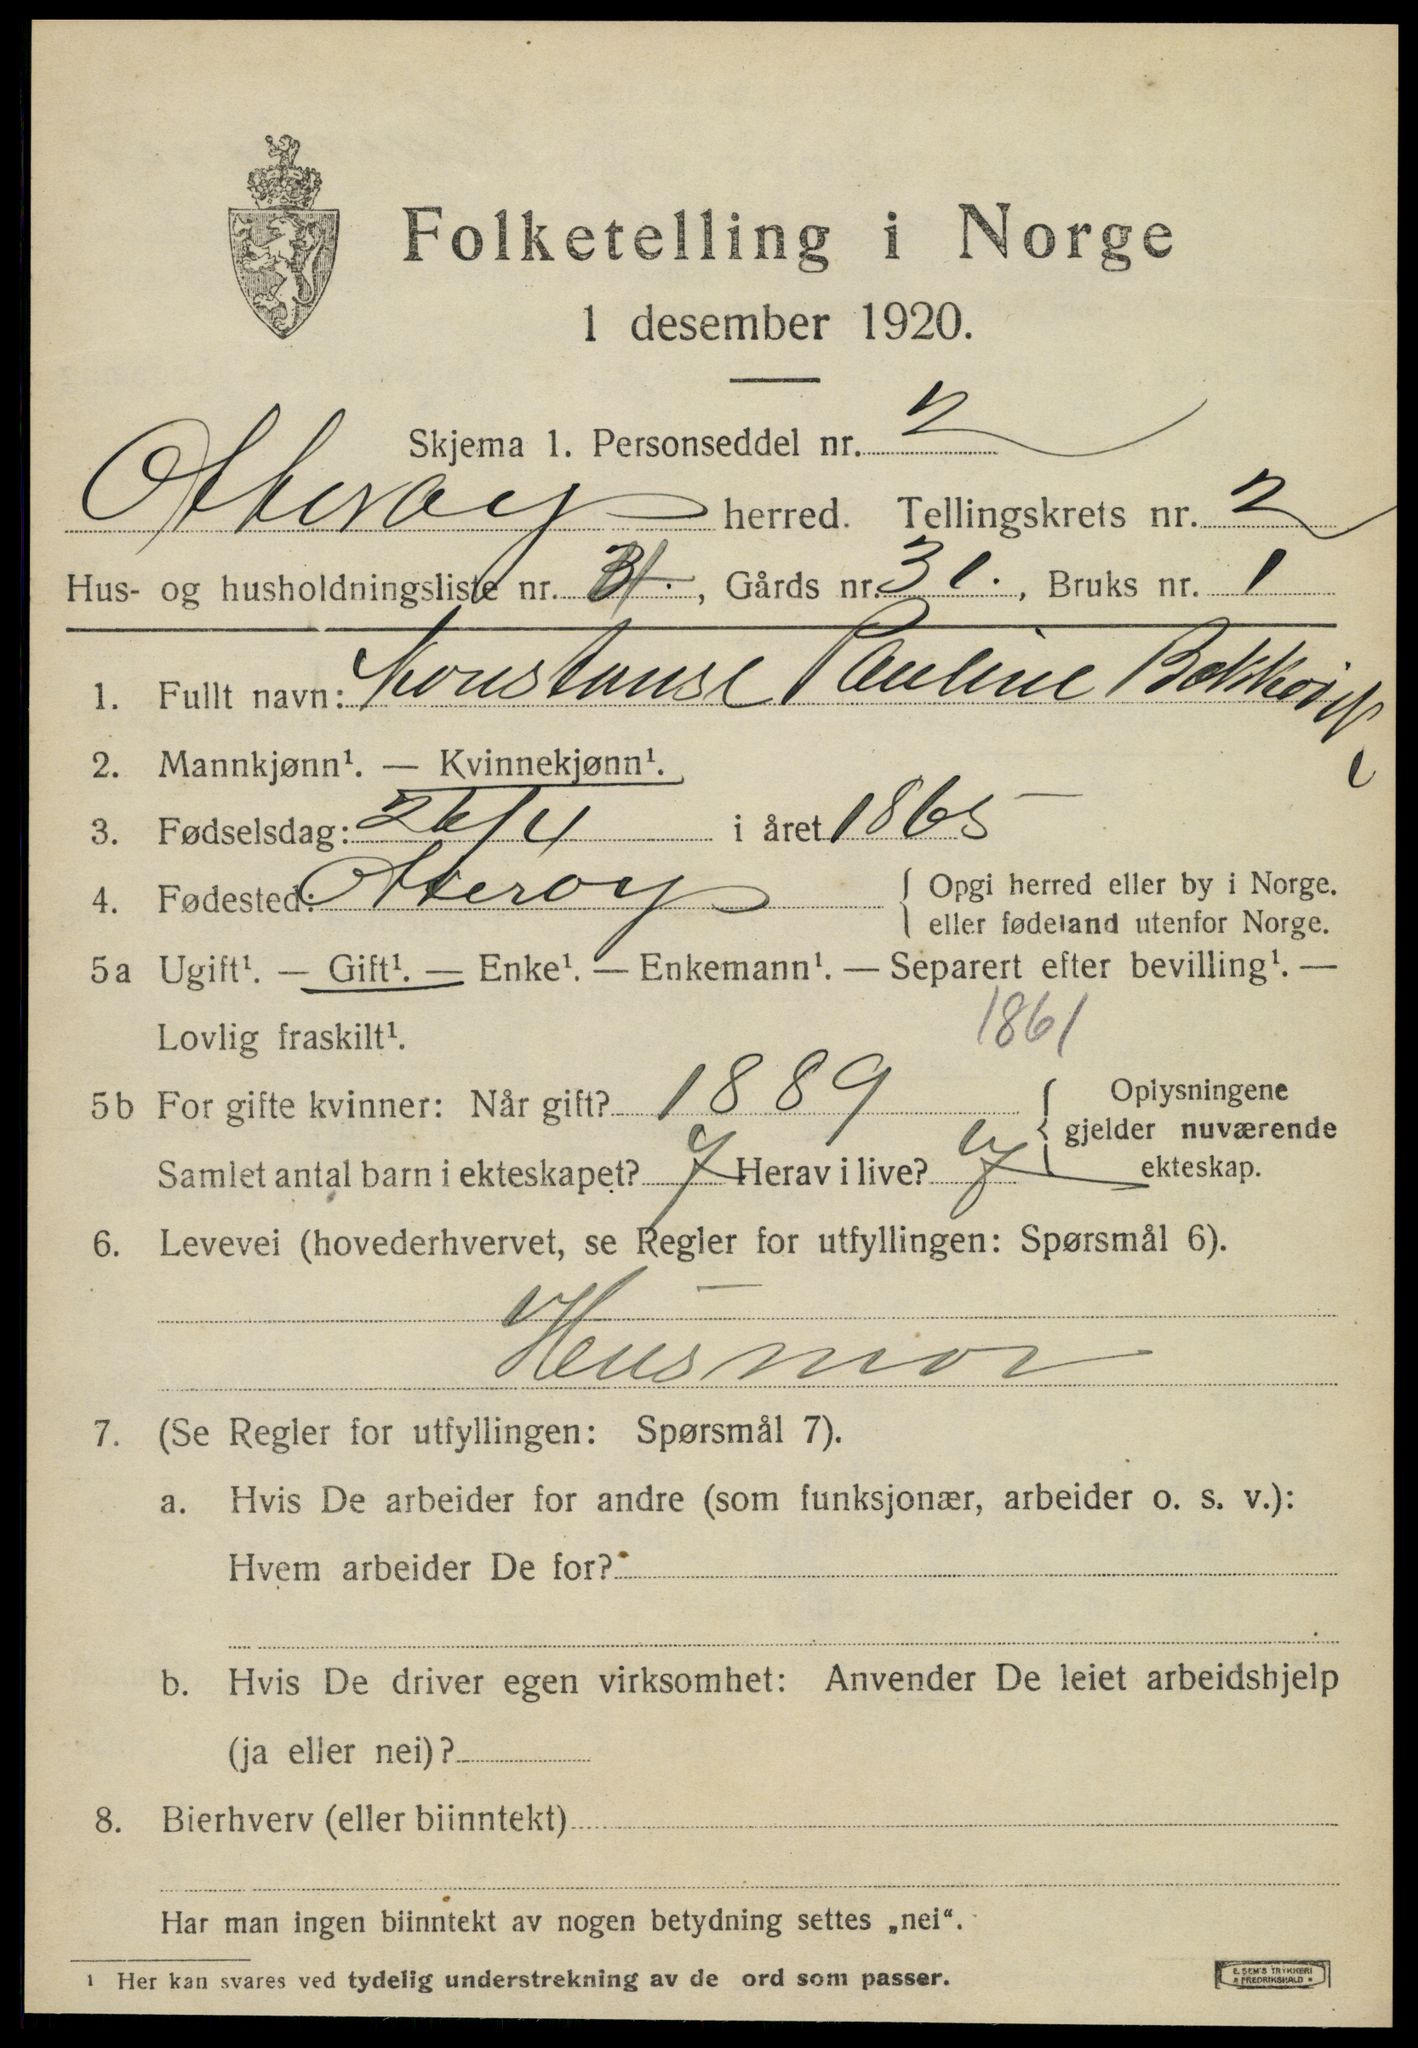 Folketelling i Norge
1 desember 1920.
Skjema 1. Personseddel nr. 2
Otterøy herred. Tellingskrets nr. 2
Hus- og husholdningsliste nr. , Gårds nr. 31. , Bruks nr. 1
1. Fullt navn: Konstanse Pauline
2. Mannkjønn¹. — Kvinnekjønn¹.
3. Fødselsdag: 26/4 i året 1865
4. Fødested: Otterøy { Opgi herred eller by i Norge.
eller fødeland utenfor Norge.
5a Ugift¹. — Gift¹. — Enke¹. — Enkemann¹. — Separert efter bevilling¹. —
Lovlig fraskilt¹.
1861
5b For gifte kvinner: Når gift? 1889 { Oplysningene
gjelder nuværende
Samlet antal barn i ekteskapet? 7 Herav i live? 7 ekteskap.
6. Levevei (hovederhvervet, se Regler for utfyllingen: Spørsmål 6).
Husmor
7. (Se Regler for utfyllingen: Spørsmål 7).
a. Hvis De arbeider for andre (som funksjonær, arbeider o. s. v.):
Hvem arbeider De for?
b. Hvis De driver egen virksomhet: Anvender De leiet arbeidshjelp
(ja eller nei)?
8. Bierhverv (eller biinntekt)
Har man ingen biinntekt av nogen betydning settes „nei“.
¹ Her kan svares ved tydelig understrekning av de ord som passer.
E. SEM'S TRYKKERI
* FREDRIKSHALD *